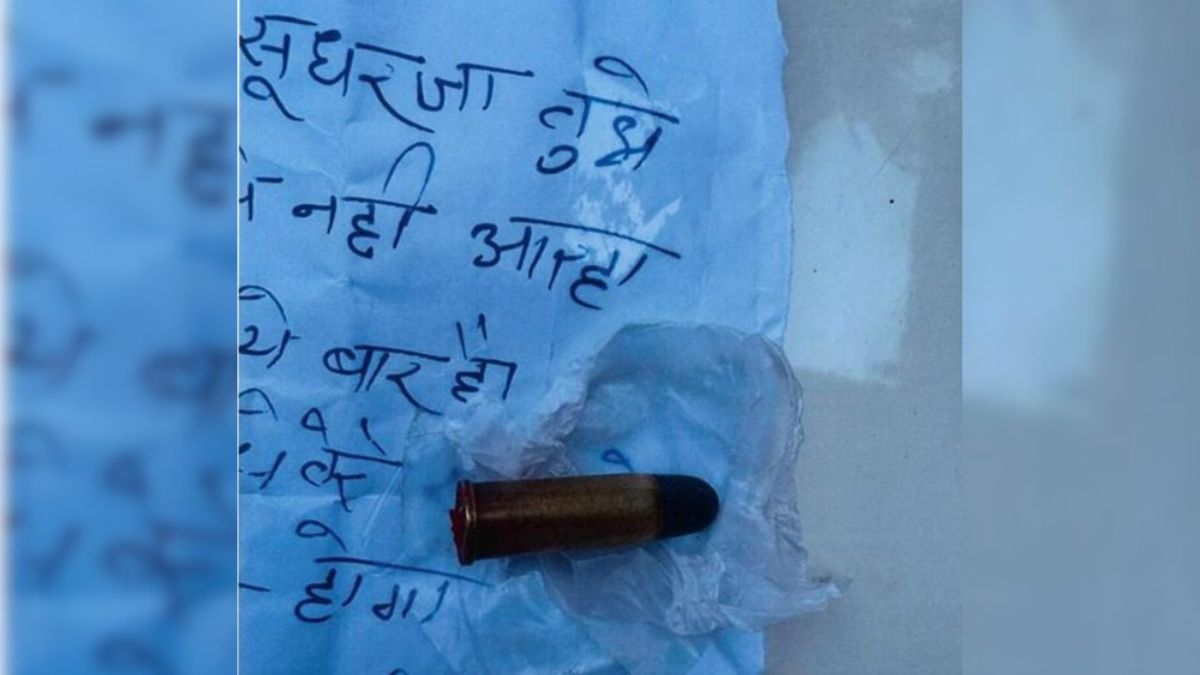 सूधरजा तुझे
नही आरहा
ये बार है
करे
होगा